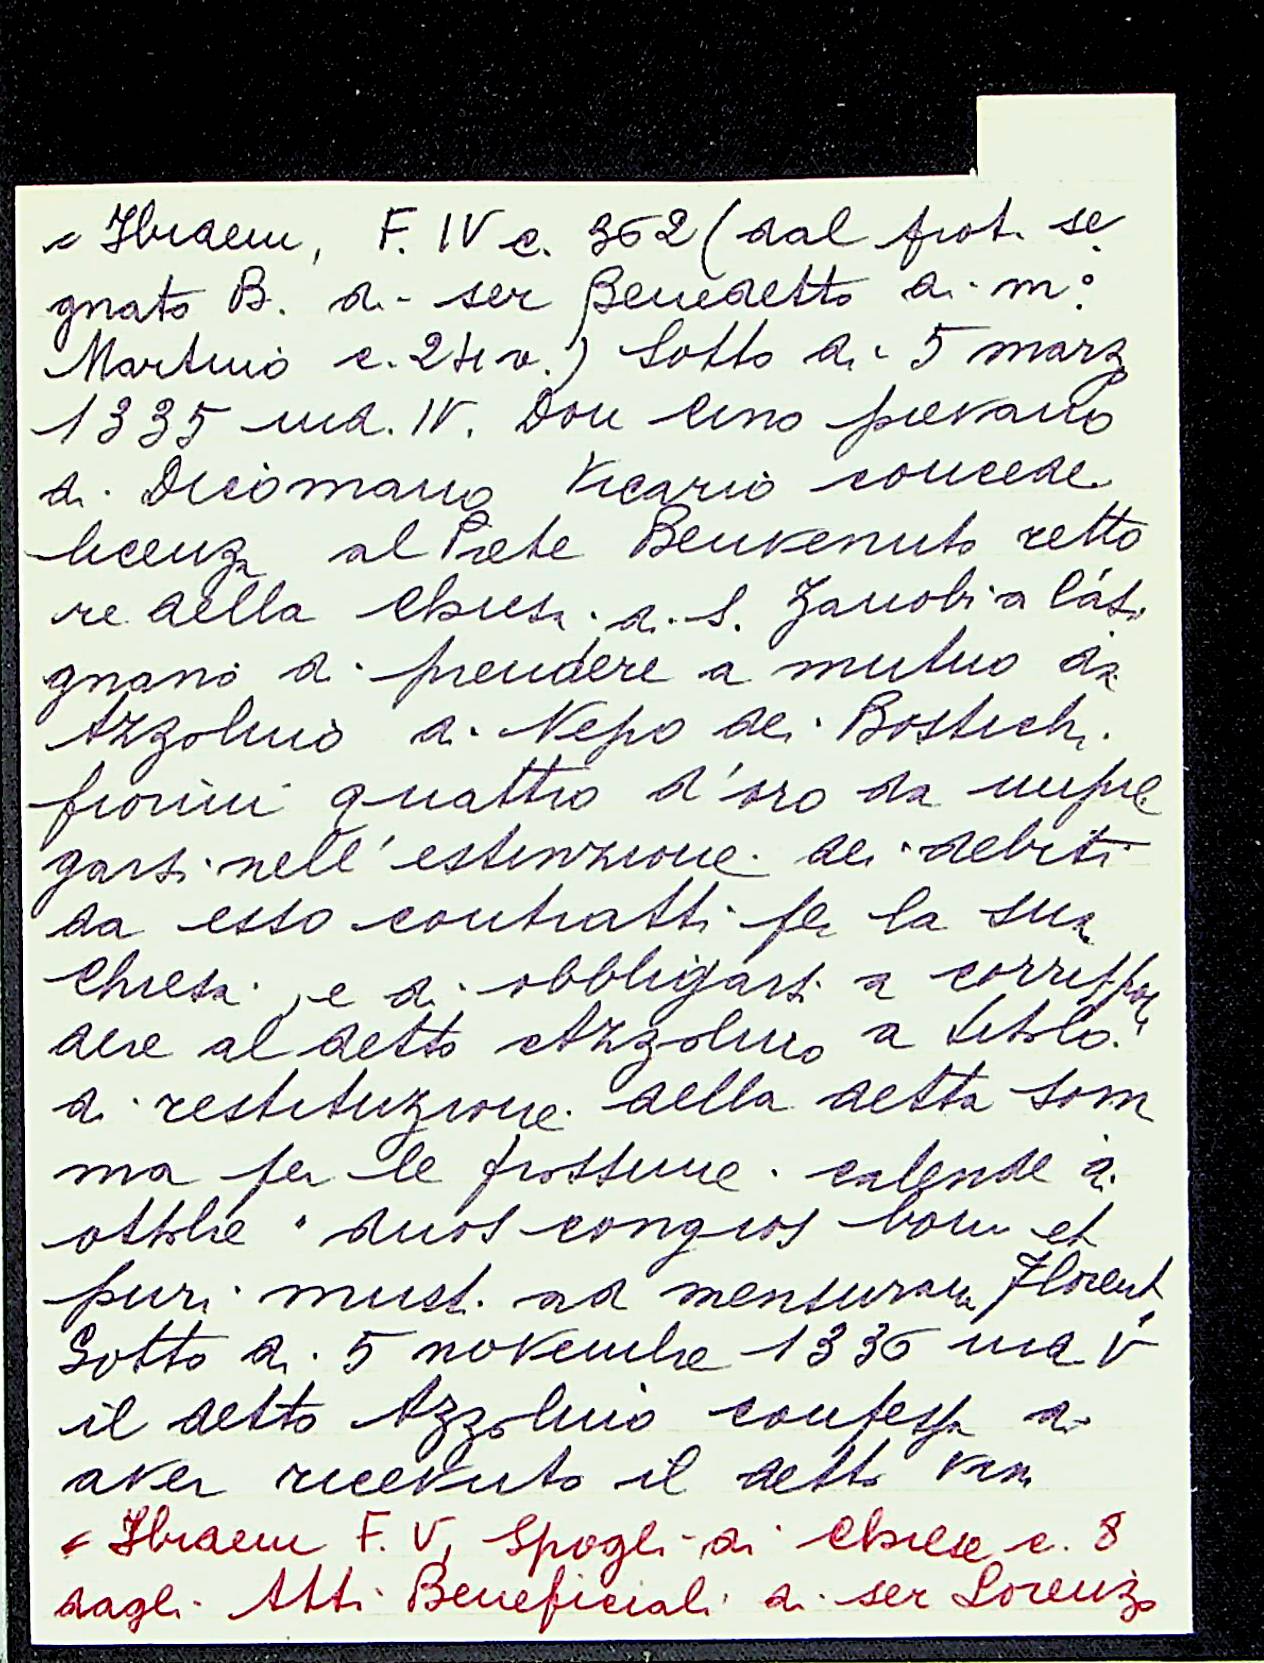 < Ibidem, F. IV c. 362 (dal prot. se
gnato B. di ser Benedetto di m.°
Martino c. v.) Sotto di 5 marzo
1335 ind. IV. Don Cino pievano
di Dicomano Vicario concede
licenza al Prete Benvenuto retto
re della Chiesa di S. Zanobi a Casi
gnano di prendere a mutuo da
Azzolino di Nepo dei Bostichi
fiorini quattro d'oro da impie
garsi nell'estinzione dei debiti
da esso contratti per la sua
Chiesa, e di obbligarsi a corrispon
dere al detto Azzolino a titolo
di restituzione della detta som
ma per le prossime calende di
ottobre "duos congios boni et
puri musti ad mensuram Florent."
Sotto di 5 novembre 1336 ind V
il detto Azzolino confessa di
aver ricevuto il detto vino
< Ibidem F. V, Spogli di Chiese c. 8
dagli Atti Beneficiali di ser Lorenzo